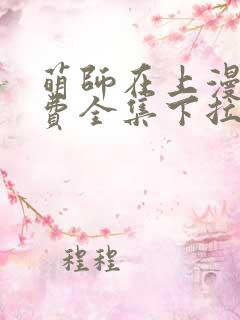 萌師在上漫
費全集下拉
程程